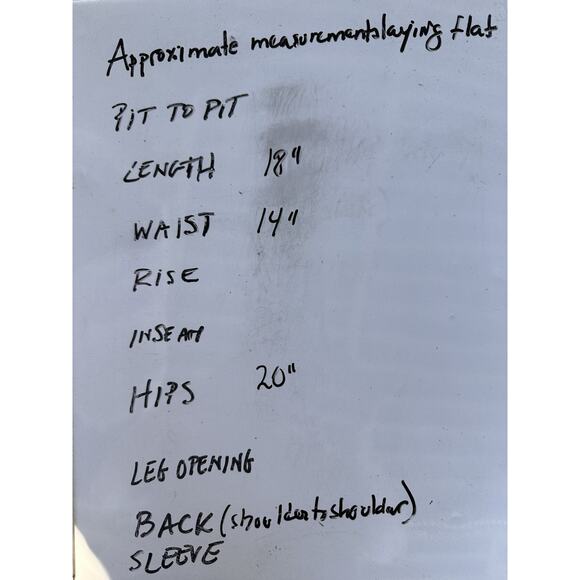 Approximate measurements laying flat
PIT TO PIT
LENGTH 18"
WAIST 14"
RISE
INSEAM
HIPS 20"
LEG OPENING
BACK (shoulder to shoulder)
SLEEVE